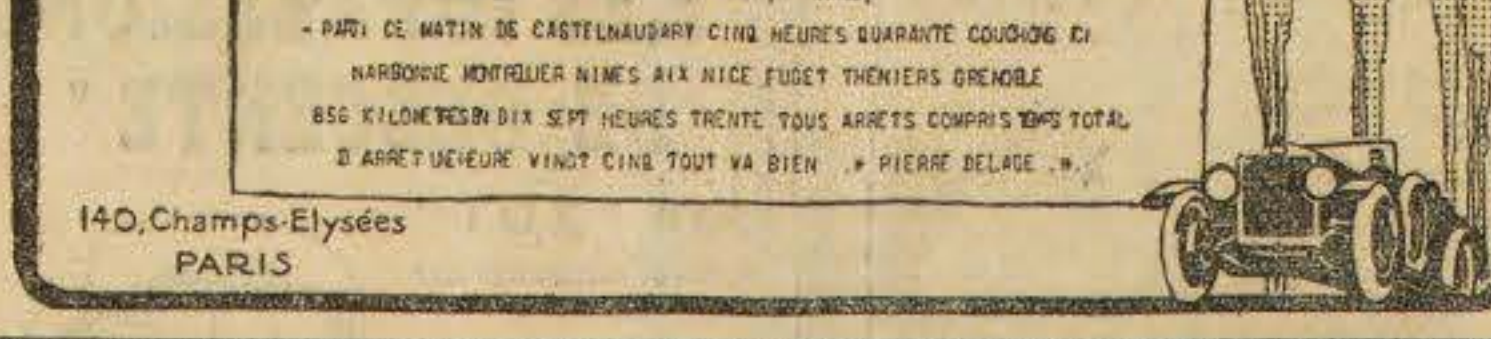 - PARTI CE MATIN DE CASTELNAUDARY CINQ HEURES QUARANTE COUCHONS ICI
NARBONNE MONTPELLIER NIMES AIX NICE PUGET THENIERS GRENOBLE
856 KILOMETRES EN DIX SEPT HEURES TRENTE TOUS ARRETS COMPRIS TEMPS TOTAL
D ARRET HEURE VINGT CINQ TOUT VA BIEN .* PIERRE DELAGE .*.
140, Champs-Elysées
PARIS